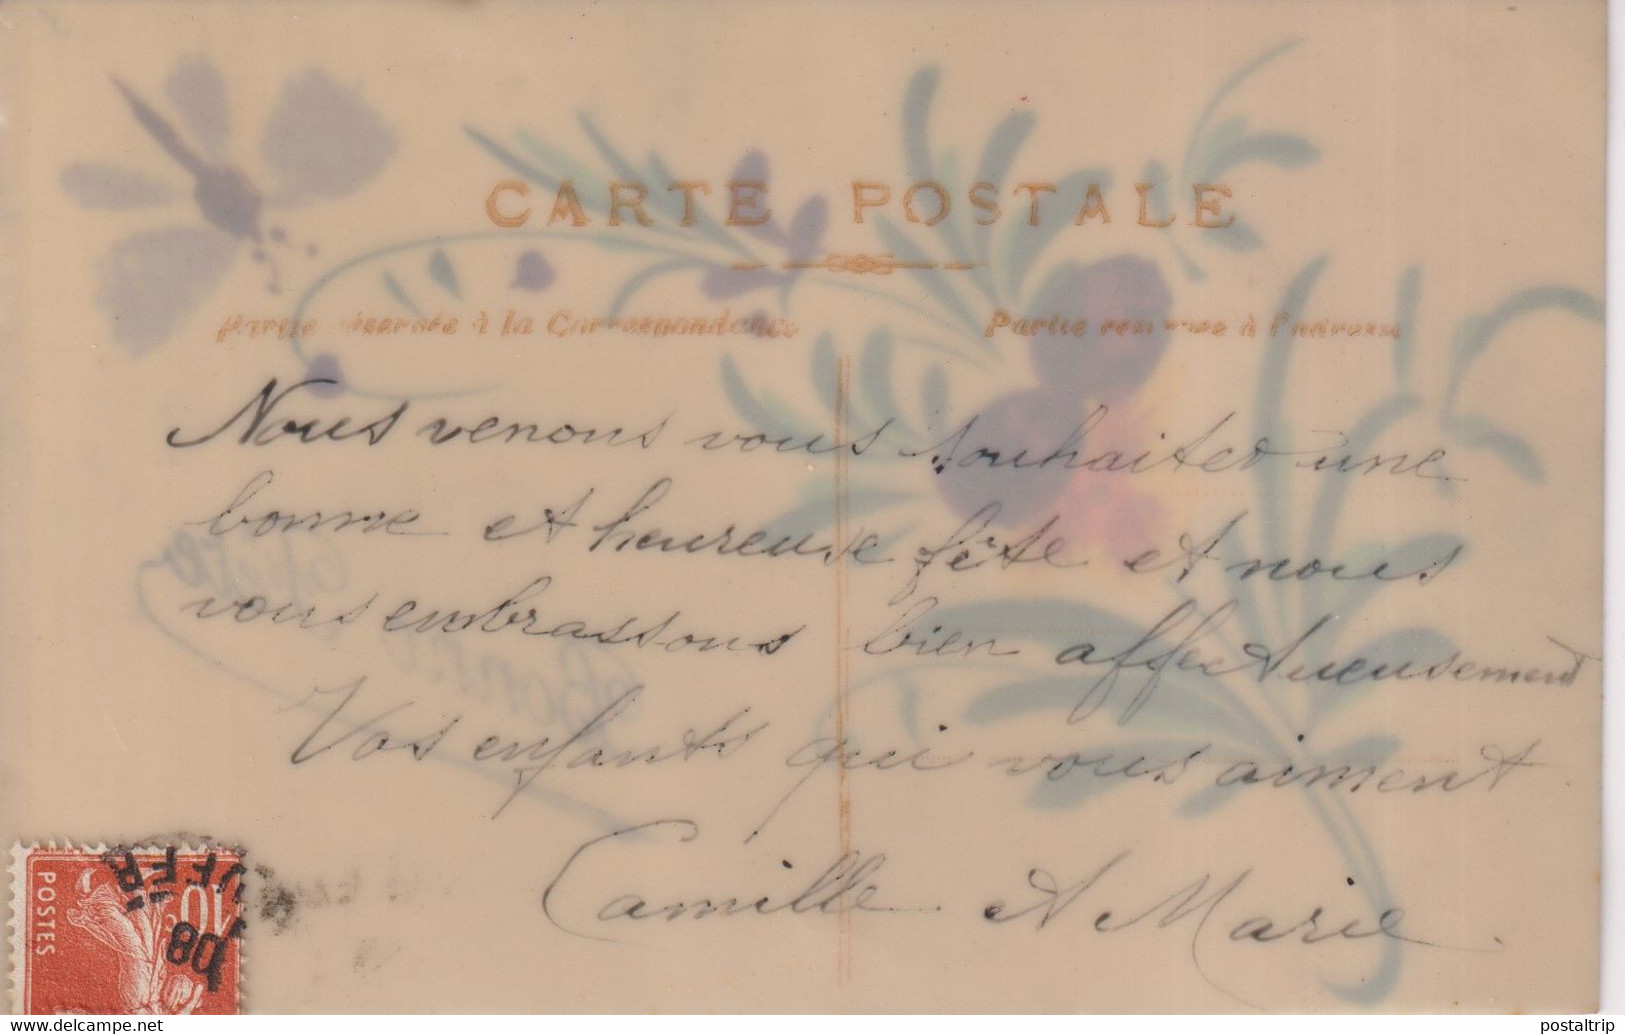 CARTE POSTALE
Partie réservée à la Correspondance
Partie réservée à l'adresse
Nous venons vous souhaiter une
bonne et heureuse fête et nous
vous embrassons bien affectueusement
Vos enfants qui vous aiment
Camille et Marie.
Bonne
POSTES
10c
08
postaltrip